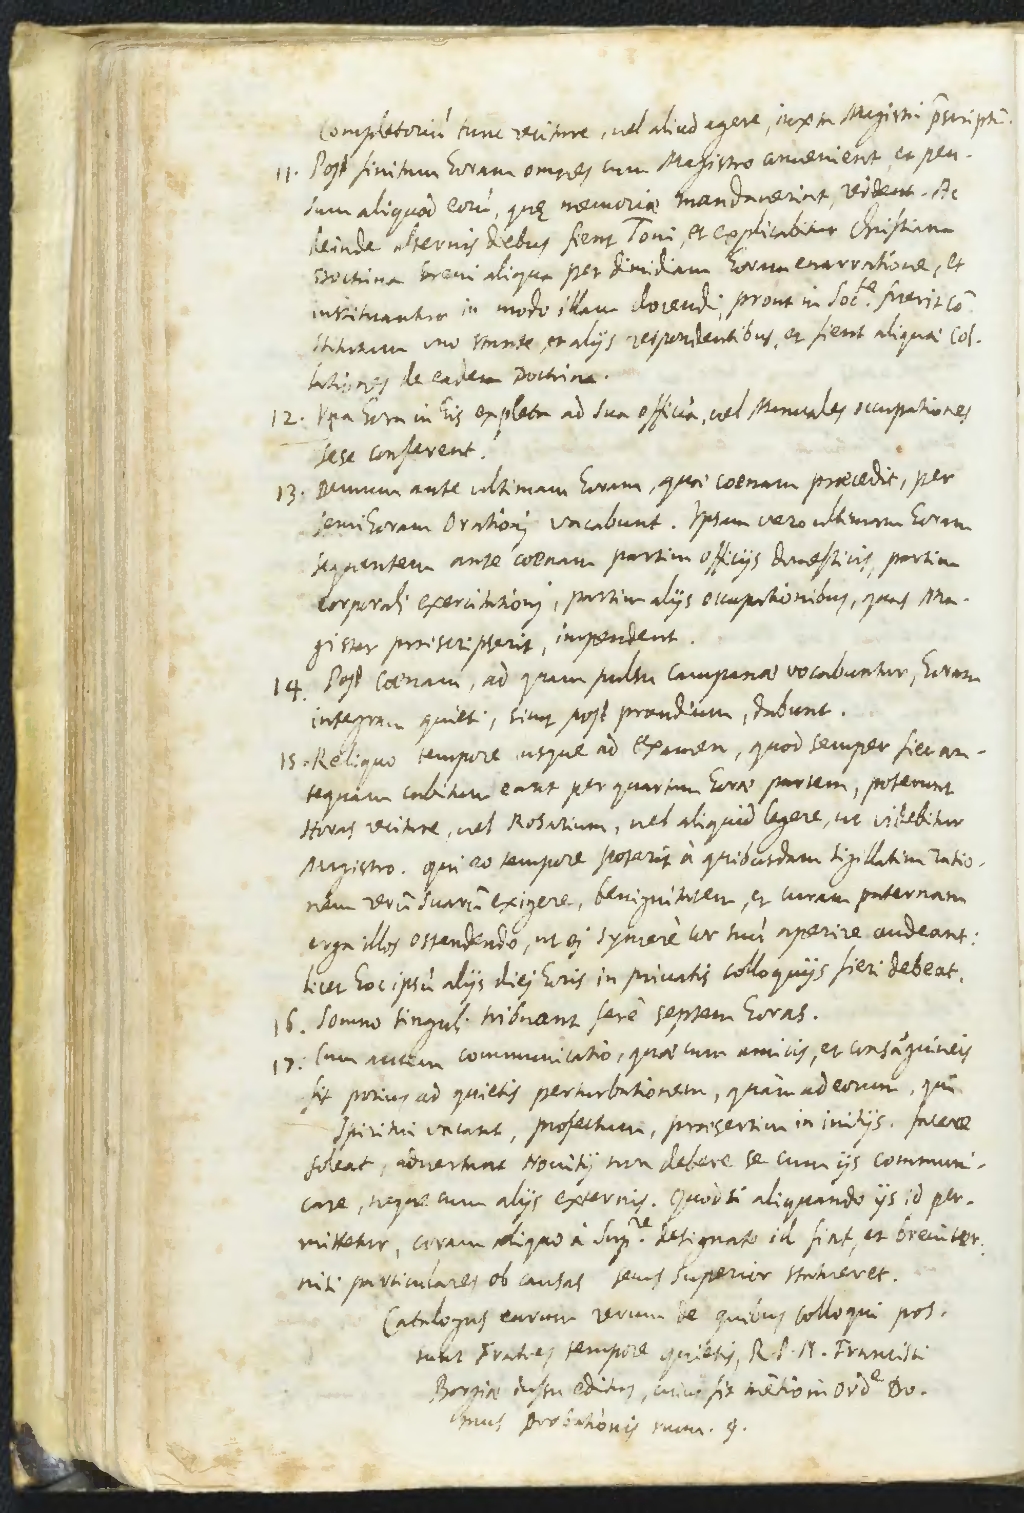 Completoriũ tunc recitare, vel aliud agere, iuxta Magistri p̄scriptũ.
11. Post finitam horam omnes cum Magistro convenient, et pen-
sum aliquod eorũ, quę memoriæ mandaverint, redent. Ac
deinde alternis diebus fient Toni, et explicabitur Christiana
Doctrina brevi aliqua per dimidiam horam enarratione, et
instituantur in modo illam docendi, prout in Soc.te fuerit cõ
stitutum uno stante, et alijs respondentibus, et fient aliquæ Col-
lationes de eadem Doctrina.
12. Una hora in his expleta ad sua officia, vel Manuales occupationes
sese conferent.
13. Demum ante ultimam horam, quæ coenam præcedit, per
semihoram Orationi vacabunt. Ipsam vero ultimam horam
sequentem ante coenam partim officijs domesticis, partim
corporali exercitationi, partim alijs occupationibus, quas Ma-
gister præscripserit, impendent.
14. Post Coenam, ad quam pulsu campanæ vocabuntur, horam
integram quieti, sicut post prandium, dabunt.
15. Reliquo tempore usque ad Examen, quod semper fiet an-
tequam cubitum eant per quartam horæ partem, poterunt
Horas recitare, vel Rosarium, vel aliquid legere, ut videbitur
Magistro. qui eo tempore poterit à quibusdam sigillatim ratio-
nem rerũ suarũ exigere, benignitatem, et curam paternam
erga illos ostendendo, ut ei syncerè cor suũ aperire audeant:
licet hoc ipsũ alijs diei horis in privatis colloquijs fieri debeat.
16. Somno singuli tribuant ferè septem horas.
17. Cum autem communicatio, quæ cum amicis, et consãguineis
fit potius ad quietis perturbationem, quàm ad eorum, qui
Spiritui vacant, profectum, præsertim in initijs. facere
soleat, advertant Novitij non debere se cum ijs communi-
care, neque cum alijs externis. Quòd si aliquando ijs id per-
mittetur, coram aliquo à Sup.re designato id fiat, et breviter.
nisi particulares ob causas secus Superior statueret.
Catalogus earum rerum de quibus colloqui pos-
sunt Fratres tempore quietis, R. P. N. Francisci
Borgiæ iussu editus, cuius fit mẽtio in Ord.e Do-
mus Probationis num. 9.